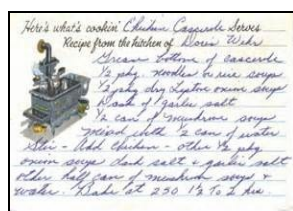 Here's what's cookin' Chicken Casserole Serves
Recipe from the kitchen of Doris
Grease bottom of casserole
1/2 pkg. noodles or rice soup
1/2 pkg dry Lipton onion soup
Dash of garlic salt
1/2 can of mushroom soup
mixed with 1/2 can of water
Stir - Add chicken - other 1/2 pkg
onion soup dash salt & garlic salt
other half can of mushroom soup &
water. Bake at 250 1 1/2 to 2 hrs.